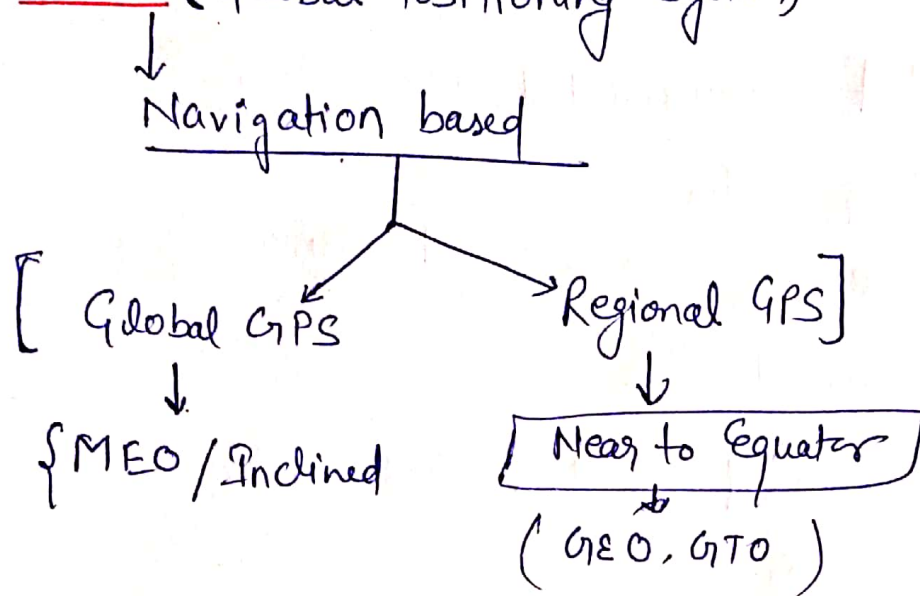 Navigation based
[ Global GPS
Regional GPS ]
{ MEO / Inclined
Near to Equator
( GEO, GTO )